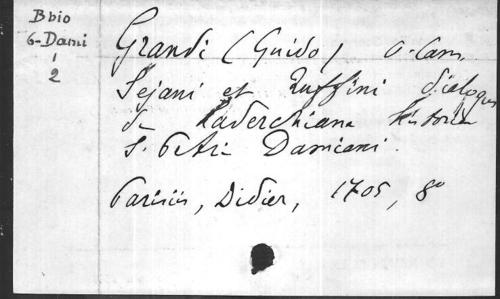 Bbio
6-Dami
1
2
Grandi (Guido) O. Cam.
Sejani et Ruffini dialogus
de Laderchiana historia
S. Petri Damiani.
Parisiis, Didier, 1705, 8º